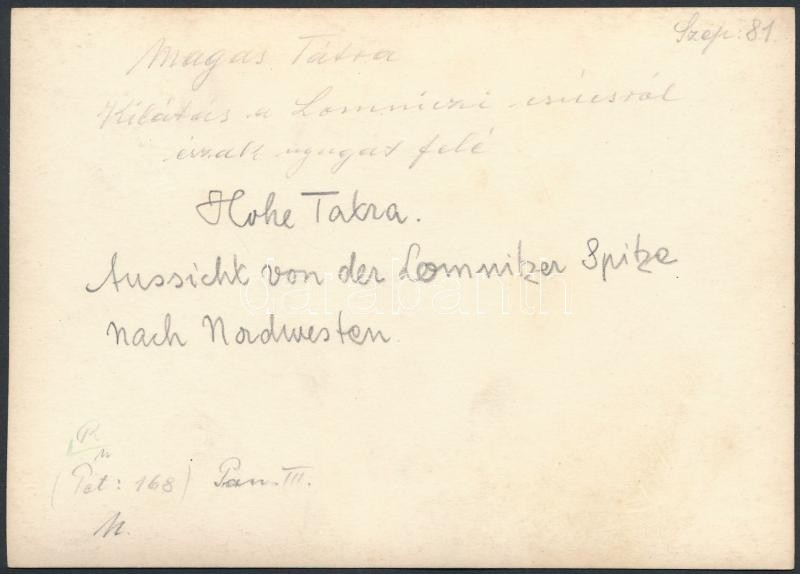 Szep: 81.
Magas Tátra
Kilátás a Lomniczi csúcsról
észak nyugat felé
Hohe Tatra.
Aussicht von der Lomnitzer Spitze
darabanth
nach Nordwesten
(Pet: 168) Pan. III.